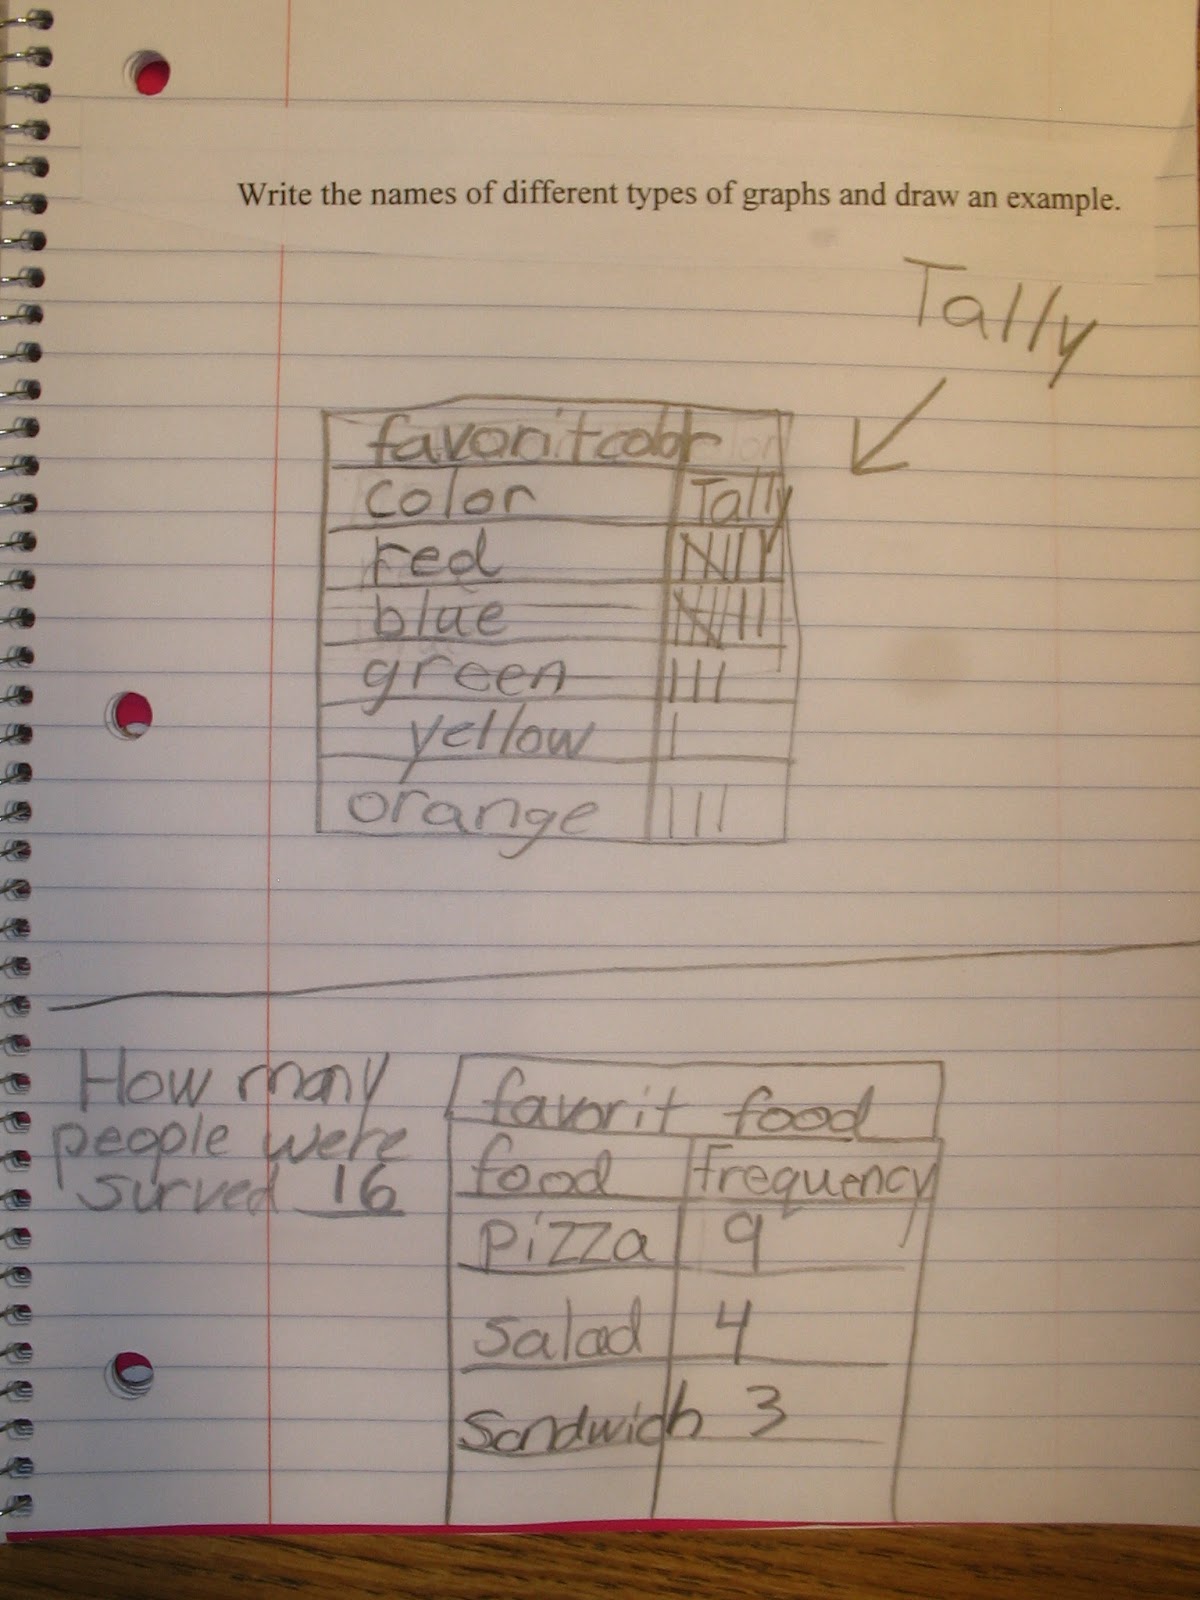 Write the names of different types of graphs and draw an example.
Tally
favoritcolor
color Tally
red
blue
green
yellow
orange
How many
people were
surved 16
favorit food
food frequency
pizza 9
Salad 4
Sandwich 3